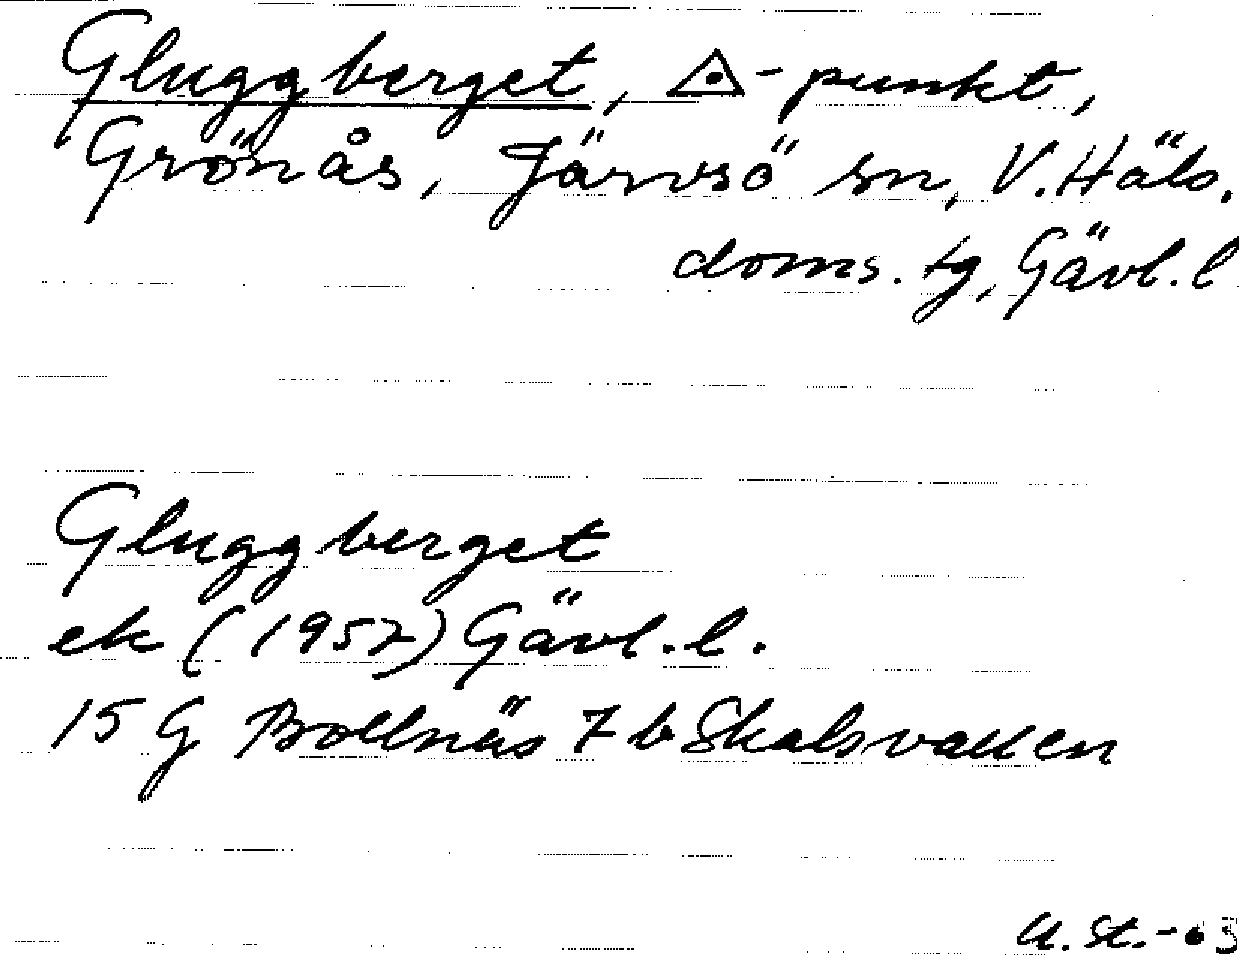 Gluggberget, △-punkt,
Grönås, Järvsö sn, V. Häls.
doms. tg, Gävl. l
Gluggberget
ek (1957) Gävl. l.
15 G Bollnäs 7 b Skalsvallen
U. St. -63